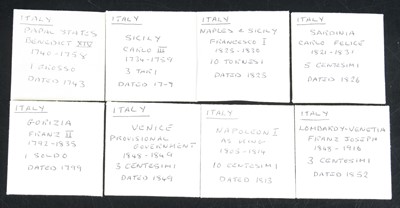 ITALY
PAPAL STATES
BENEDICT XIV
1740-1758
1 GROSSO
DATED 1743
ITALY
SICILY
CARLO III
1734-1759
3 TARI
DATED
ITALY
NAPLES & SICILY
FRANCESCO I
1825-1830
10 TORNESI
DATED 1825
ITALY
SARDINIA
CARLO FELICE
1821-1831
5 CENTESIMI
DATED 1826
ITALY
GORIZIA
FRANZ II
1792-1835
1 SOLDO
DATED 1799
ITALY
VENICE
PROVISIONAL
GOVERNMENT
1848-1849
3 CENTESIMI
DATED 1849
ITALY
NAPOLEON I
AS KING
1805-1814
10 CENTESIMI
DATED 1813
ITALY
LOMBARDY-VENETIA
FRANZ JOSEPH
1848-1916
3 CENTESIMI
DATED 1852